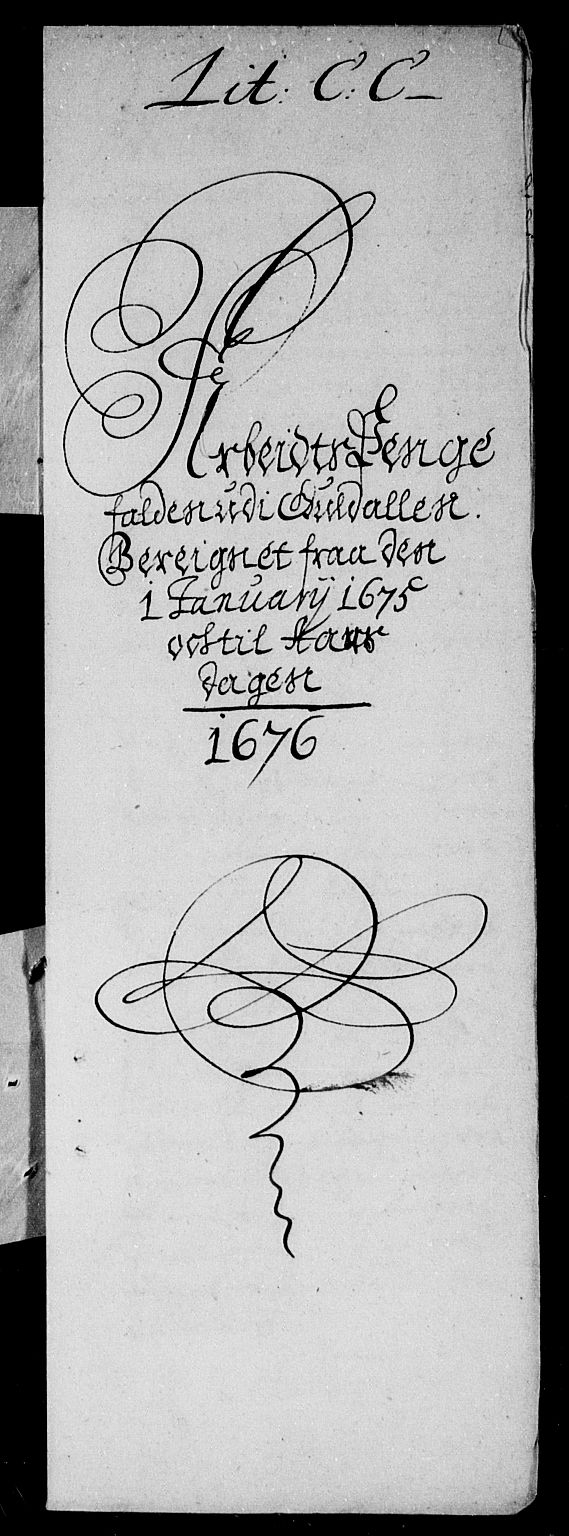 Lit: C: C
Arbeidts Penge
falden udi Guldallen.
Bereignet fraa den
1 January 1675
och til Aars
dagen
1676